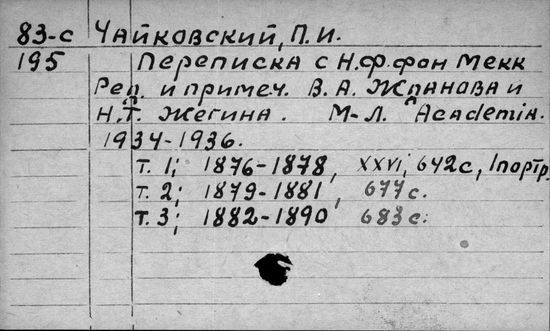 83-с Чайковский, П. И.
195 Переписка с Н.Ф. фон Мекк
Ред. и примеч. В. А. Жданова и
Н. Т. Жегина. М-Л. Academia.
1934-1936.
т. 1; 1876-1878, XXVI, 642с., 1 портр.
т. 2; 1879-1881, 677 с.
т. 3; 1882-1890 683 с.